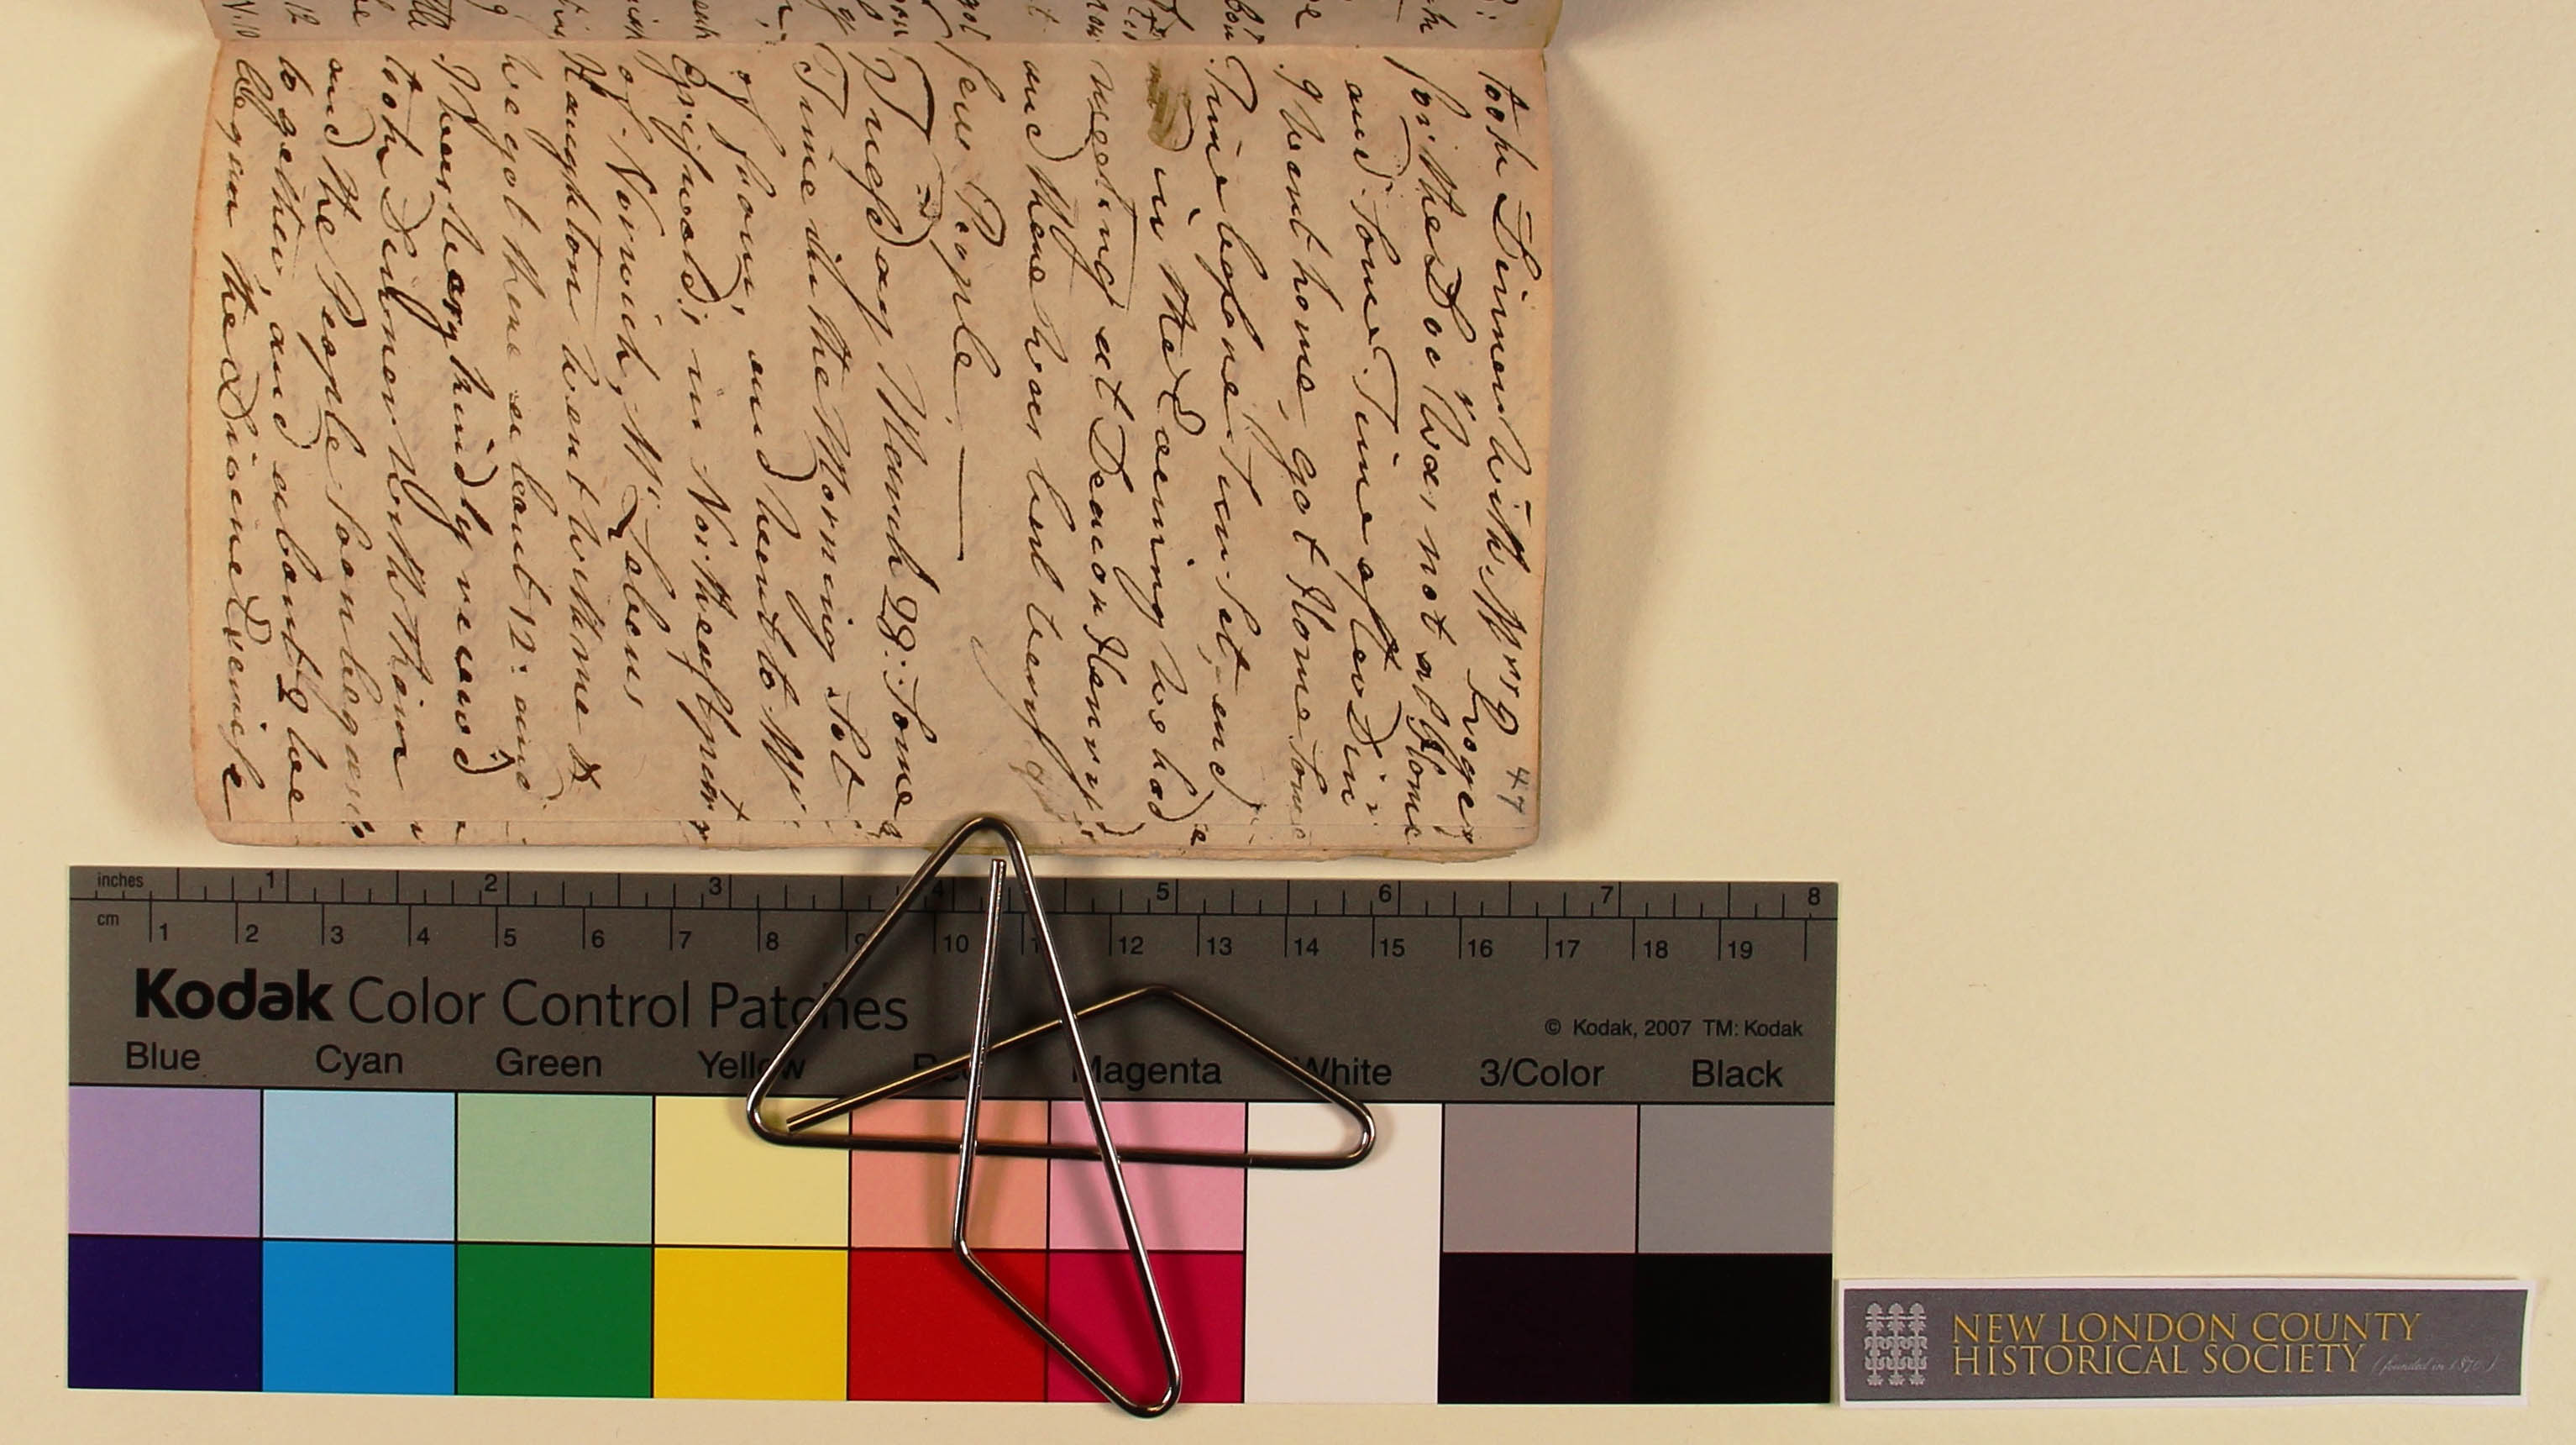 47
took Dinner with Mrs Roger
for the Doc.r was not at Home
and Some Time after Din
g went home, got Home Some
Time before Sun Set, and
in the Evening we had a
meeting at Deacon Henrys
and there was but very
few People. —
Tuesday March 28: Some
Time in the Morning Sot
of Soon, and went to Mr
Griswods, in North east part
of Norwich, Mr Jabez
Haughton went with me &
we got there about 12: and
I was very kindly receivd,
took Dinner with them
and the People Soon began
to gether, and about 2 we
began the Divine Exercise
inches 1 2 3 4 5 6 7 8
cm 1 2 3 4 5 6 7 8 9 10 12 13 14 15 16 17 18 19
Kodak Color Control Patches
© Kodak, 2007 TM: Kodak
Blue Cyan Green Yellow Red Magenta White 3/Color Black
NEW LONDON COUNTY
HISTORICAL SOCIETY (founded in 1870)